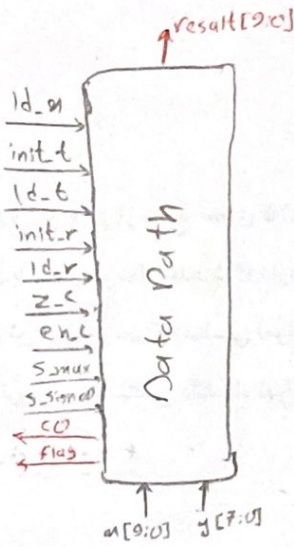 result[9:0]
ld_x
init_t
ld_t
init_r
ld_r
z_c
en_c
s_mux
s_signed
co
flag
Data Path
x[9:0] y[7:0]